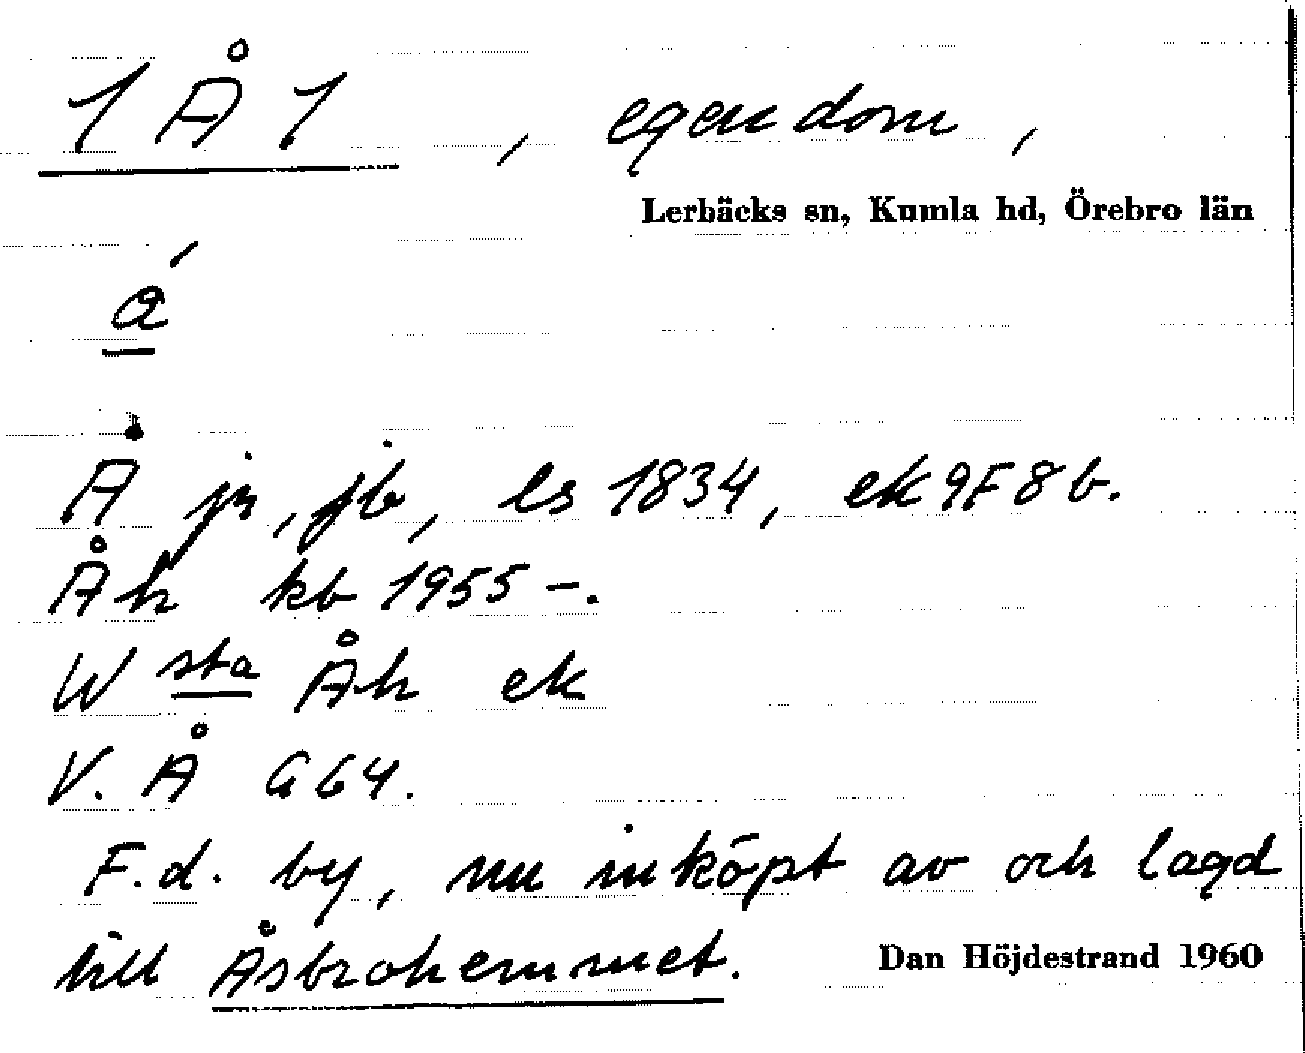 1 Å 1, egendom,
Lerbäcks sn, Kumla hd, Örebro län
á
Å jr, jb, ls 1834, ek 9F8b.
Åh kb 1955 –.
W sta Åh ek
V. Å G64.
F.d. by, nu inköpt av och lagd
till Åsbrohemmet.
Dan Höjdestrand 1960